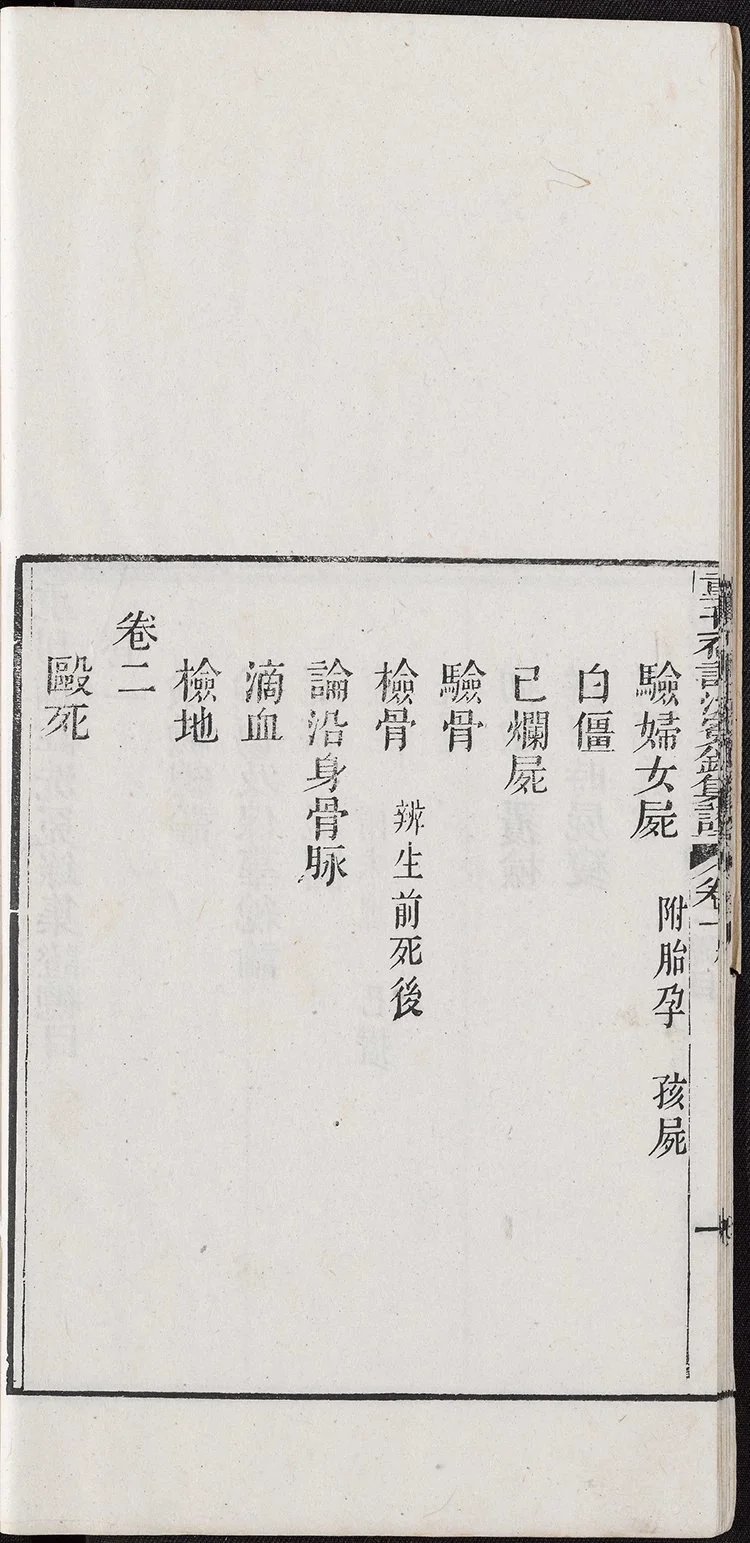 驗婦女屍 附胎孕 孩屍
白僵
已爛屍
驗骨
檢骨 辨生前死後
論沿身骨脈
滴血
檢地
卷二
毆死